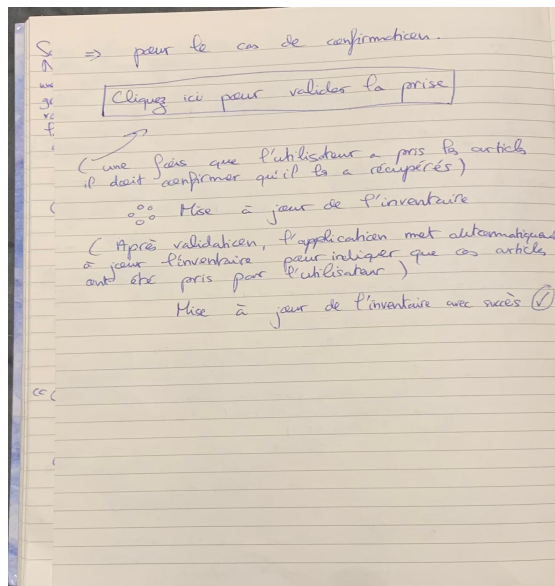 ⇒ pour le cas de confirmation.
Cliquez ici pour valider la prise
(une fois que l'utilisateur a pris les articles
il doit confirmer qu'il les a récupérés)
Mise à jour de l'inventaire
(Après validation, l'application met automatiquement
à jour l'inventaire pour indiquer que ces articles
ont été pris par l'utilisateur)
Mise à jour de l'inventaire avec succès ✓